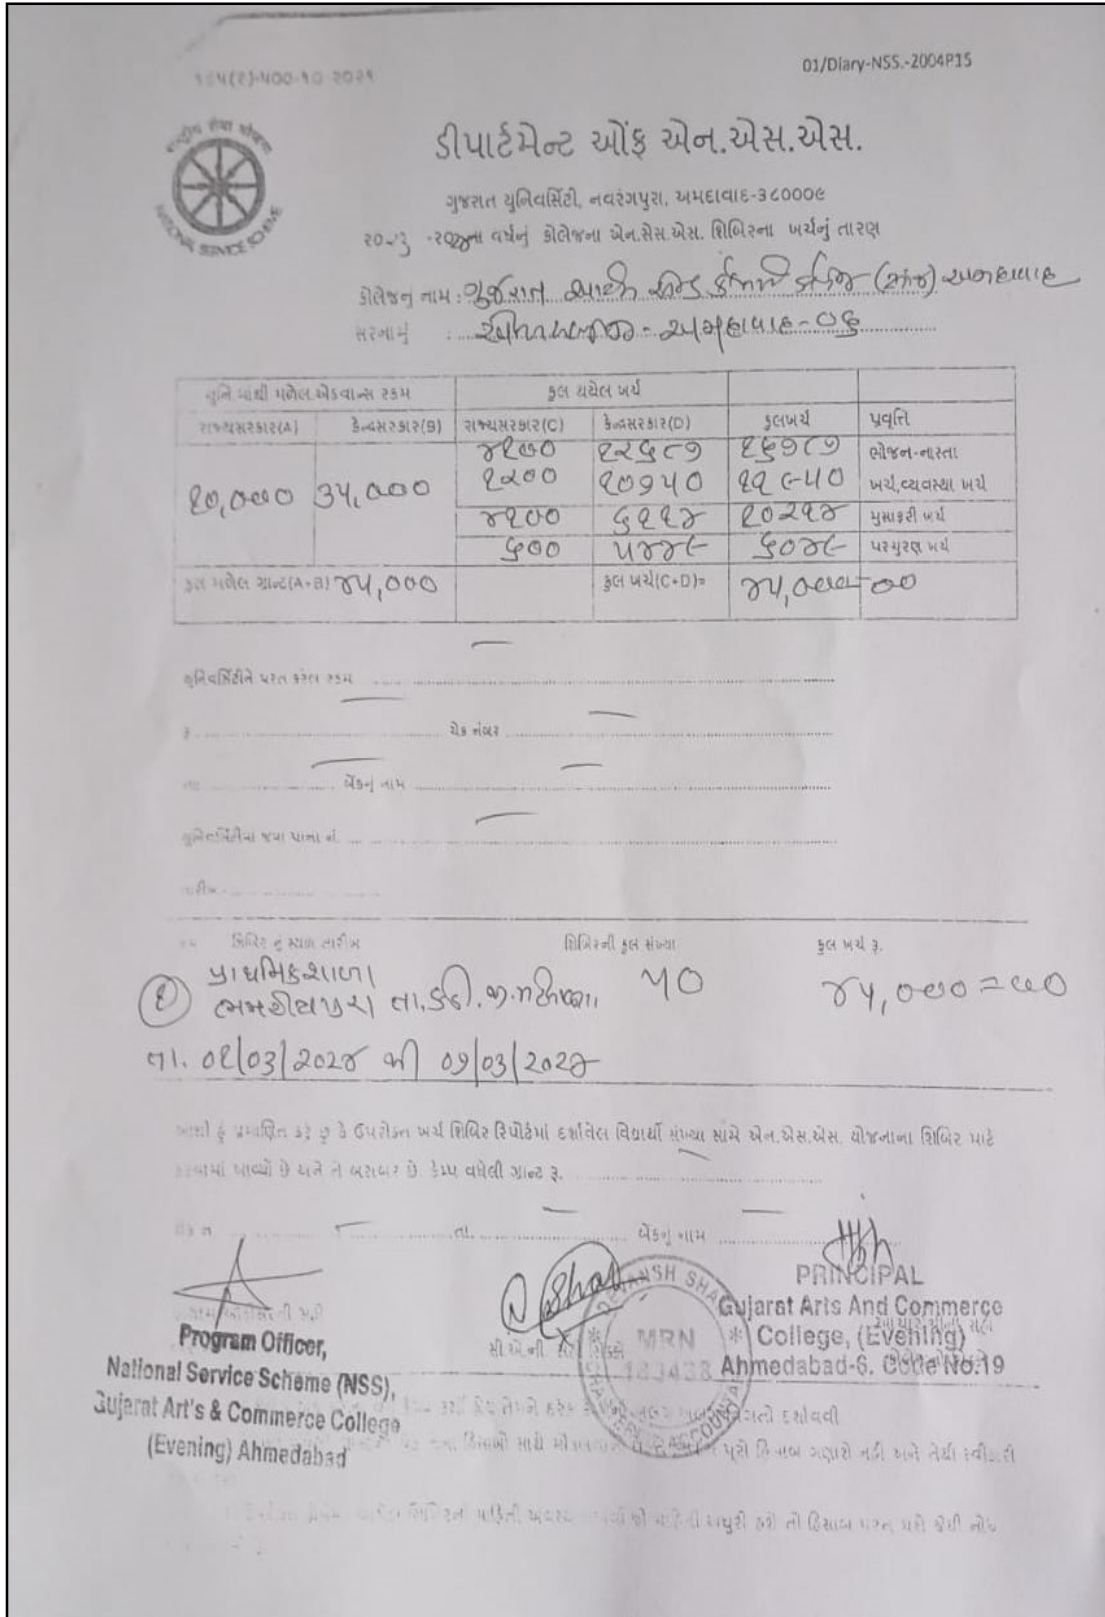 ૧૬૫(૨)-૫૦૦-૧૦ ૨૦૨૧
01/Diary-NSS.-2004P15
NATIONAL SERVICE SCHEME
ડીપાર્ટમેન્ટ ઓંફ એન.એસ.એસ.
ગુજરાત યુનિવર્સિટી, નવરંગપુરા, અમદાવાદ-૩૮૦૦૦૯
૨૦૨૩ -૨૦૨૪ના વર્ષનું કોલેજના એન.સેસ.એસ. શિબિરના ખર્ચનું તારણ
કોલેજનુ નામ: ગુજરાત આર્ટ્સ એન્ડ કોમર્સ કોલેજ (સાંજ) અમદાવાદ
સરનામું : અમદાવાદ-૦૬
યુનિ.માંથી મળેલ એડવાન્સ રકમ કુલ થયેલ ખર્ચ
રાજ્યસરકાર(A) કેન્દ્રસરકાર(B) રાજ્યસરકાર(C) કેન્દ્રસરકાર(D) કુલખર્ચ પ્રવૃત્તિ
૧૦,૦૦૦ ૩૫,૦૦૦ ૪૧૦૦ ૧૨૬૮૭ ૧૬૭૮૭ ભોજન-નાસ્તા
૧૨૦૦ ૧૦૭૫૦ ૧૧૯૫૦ ખર્ચ,વ્યવસ્થા ખર્ચ
૪૧૦૦ ૬૧૧૪ ૧૦૨૧૪ મુસાફરી ખર્ચ
૬૦૦ ૫૪૪૯ ૬૦૪૯ પરચુરણ ખર્ચ
કુલ મળેલ ગ્રાન્ટ(A+B) ૪૫,૦૦૦ કુલ ખર્ચ(C+D)= ૪૫,૦૦૦-૦૦
યુનિવર્સિટીને પરત કરેલ રકમ
રૂ. ચેક નંબર
તા. બેંકનુ નામ
યુનિવર્સિટીના જમા પાના નં.
તારીખ
શિબિર નું સ્થળ તારીખ શિબિરની કુલ સંખ્યા કુલ ખર્ચ રૂ.
(૧) પ્રાથમિકશાળા ૫૦ ૪૫,૦૦૦=૦૦
તા.કડી.
તા. ૦૧/૦૩/૨૦૨૪ થી ૦૭/૦૩/૨૦૨૪
આથી હું પ્રમાણિત કરૂ છુ કે ઉપરોક્ત ખર્ચ શિબિર રિપોર્ટમાં દર્શાવેલ વિદ્યાર્થી સંખ્યા સામે એન.એસ.એસ. યોજનાના શિબિર માટે
કરવામાં આવ્યો છે અને તે બરાબર છે. કેમ્પ વધેલી ગ્રાન્ટ રૂ.
ચેક નં તા. બેંકનું નામ
Program Officer,
National Service Scheme (NSS),
Gujarat Art's & Commerce College
(Evening) Ahmedabad
સી.એ.ની સિક્કો
DEVANSH SHAH
MRN
183438
PRINCIPAL
Gujarat Arts And Commerce
College, (Evening)
Ahmedabad-6. Code No.19
દર્શાવવી
હિસાબો સાથે પૂરો હિસાબ ગણાશે નહી અને તેથી સ્વીકારી
માહિતી અધુરી હશે તો હિસાબ પરત થશે જેથી નોંધ